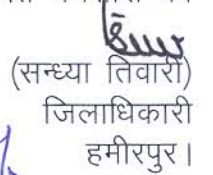 (सन्ध्या तिवारी)
जिलाधिकारी
हमीरपुर।